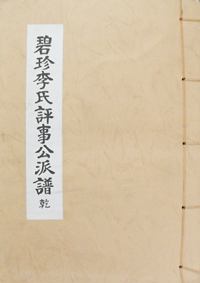 碧珍李氏評事公派譜 乾